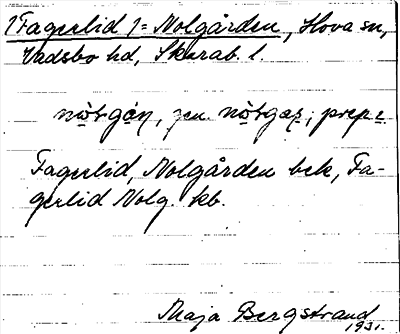 (Fagerlid)= Nolgården, Hova sn,
Vadsbo hd, Skarab. l.
nòrgán, gen. nòrgaṣ, prep i
Fagerlid, Nolgården bek, Fa-
gerlid Nolg. kb.
Maja Bergstrand
1931.